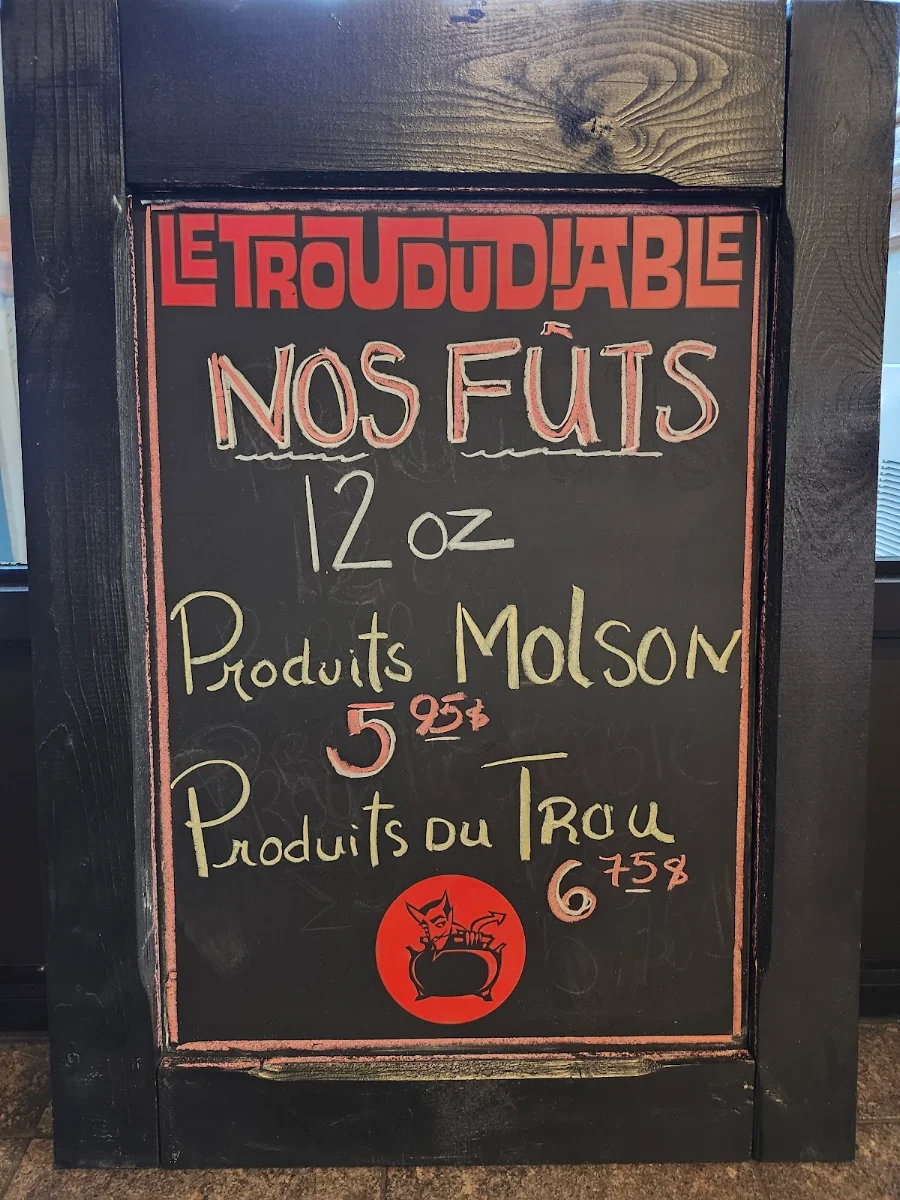 LE TROU DU DIABLE
NOS FÛTS
12 oz
Produits Molson
5 95$
Produits DU TROU
6 75$